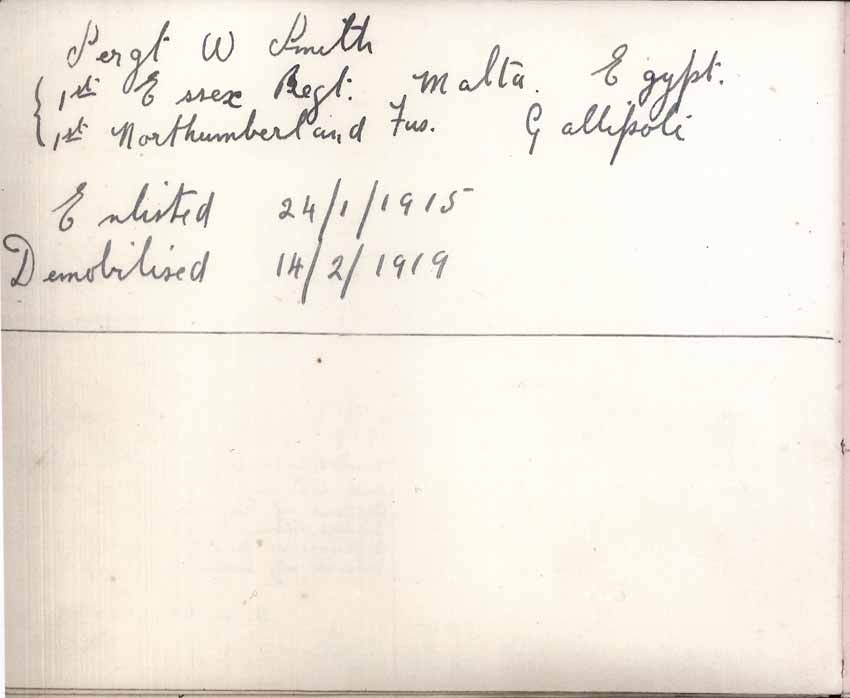 Sergt W Smith
1st Essex Regt. Malta. Egypt.
1st Northumberland Fus. Gallipoli
Enlisted 24/1/1915
Demobilised 14/2/1919